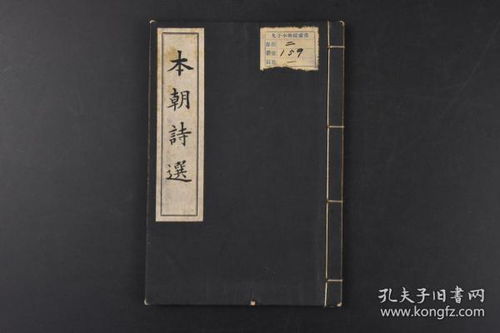 本朝詩選
二
159
一
孔夫子旧书网
www.kongfz.com